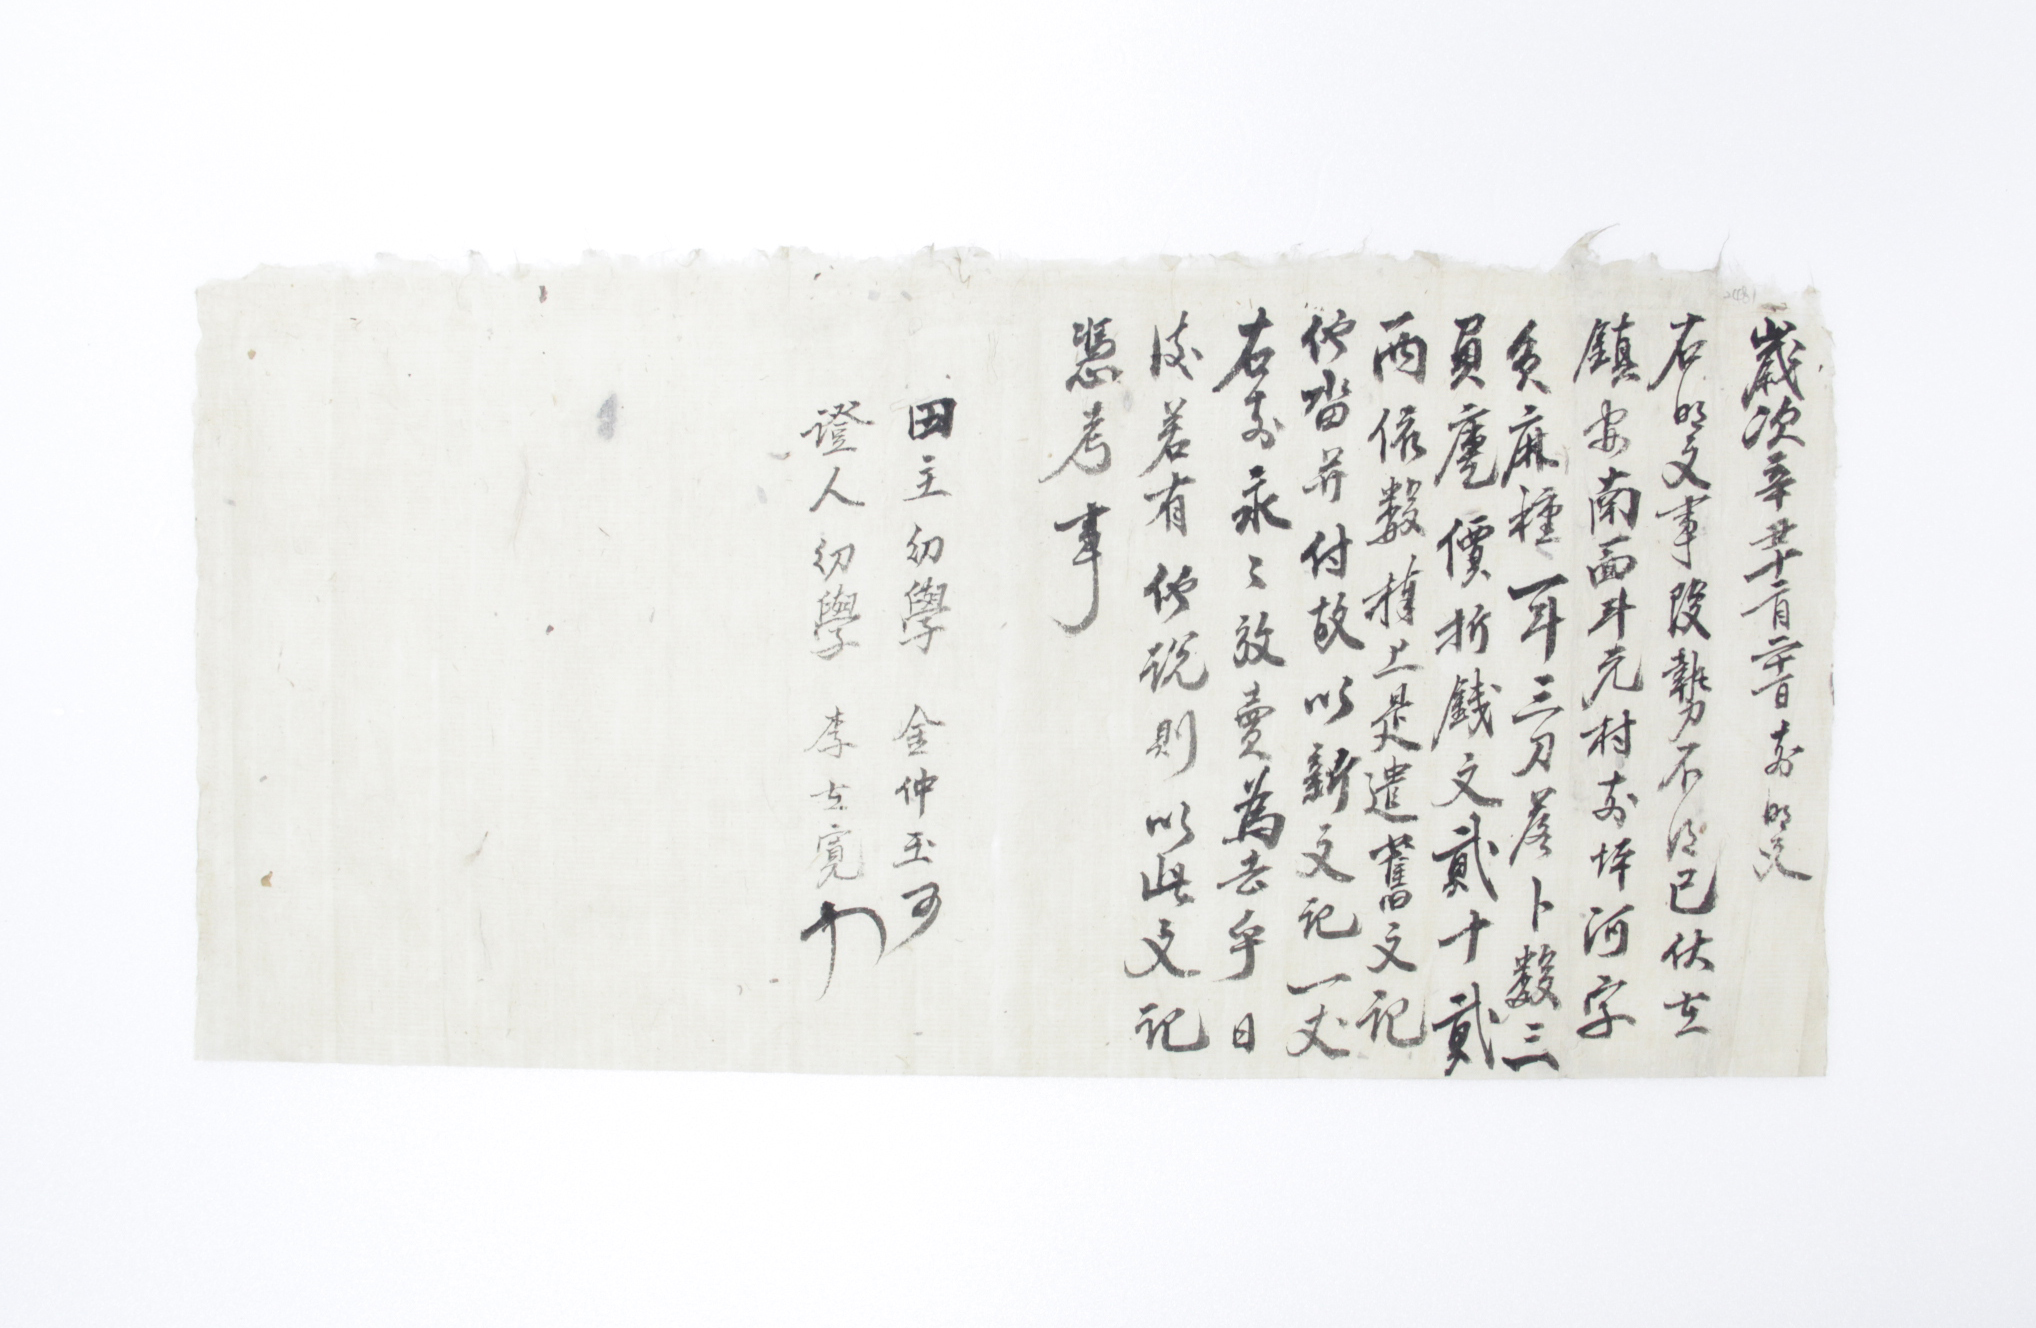 歲次辛丑十二月二十日 前明文
右明文事段勢不得已伏在
鎭安南面斗元村前坪河字
負麻種一斗三刀落卜數三
負庫價折錢文貳十貳
兩依數捧上是遣舊文記
他畓并付故以新文記一丈
右前永々放賣爲去乎日
後若有他說則以此文記
憑考事
田主幼學 金仲玉
證人幼學 李士寬